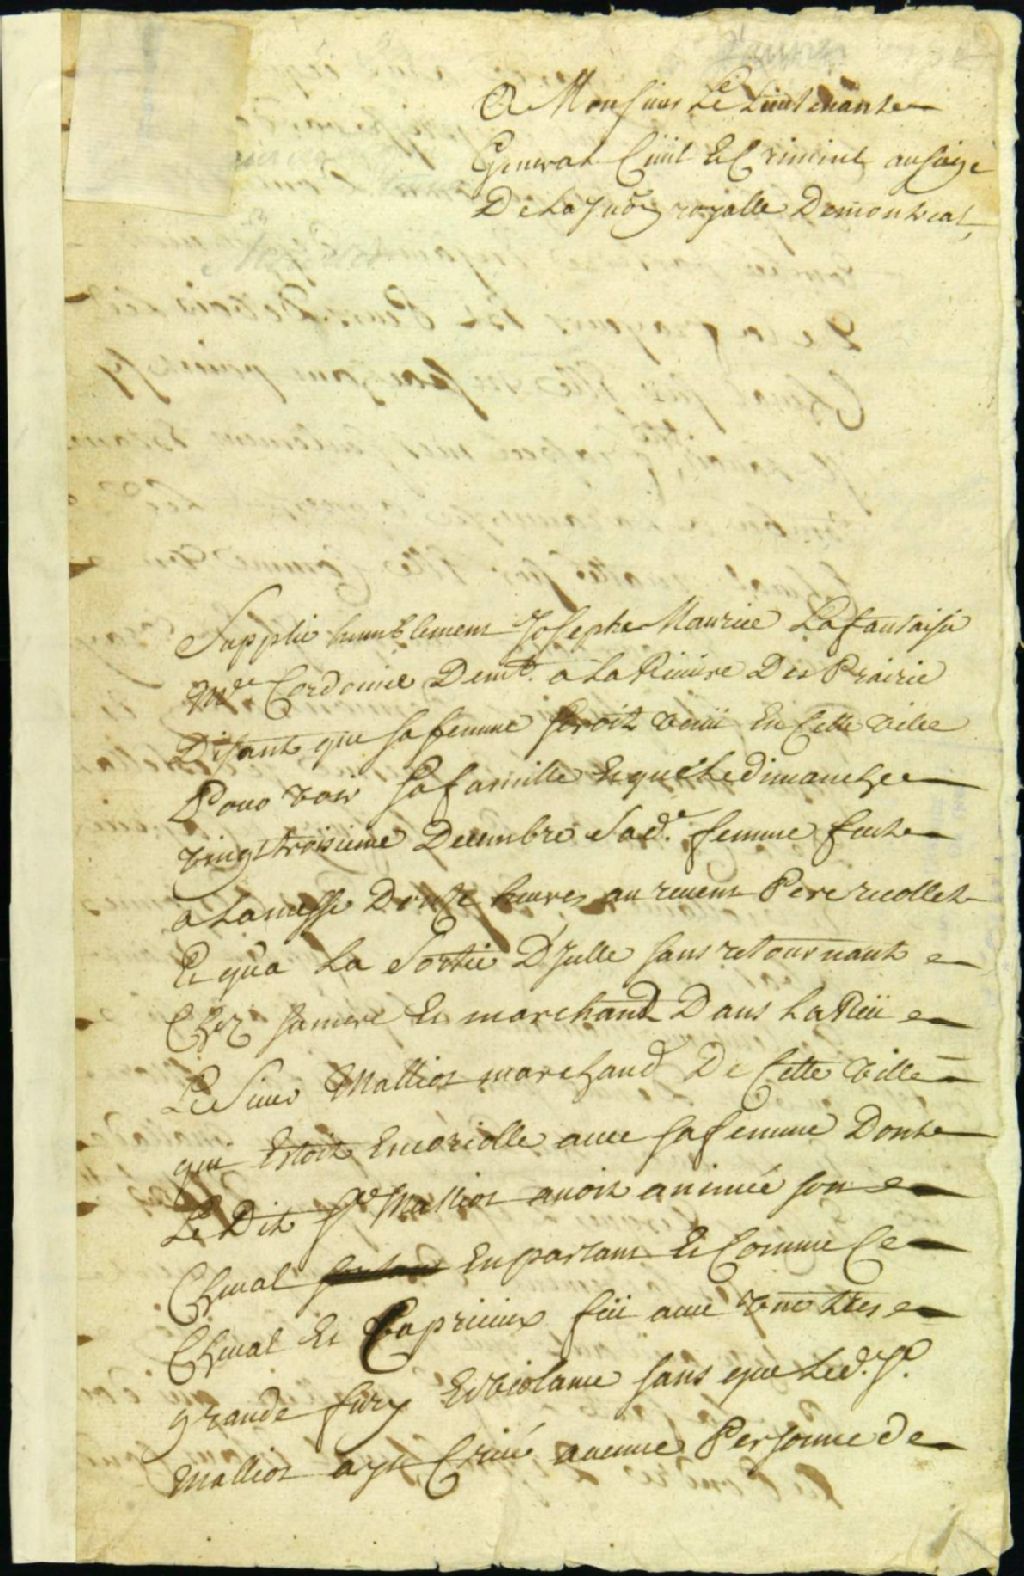 A Monsieur Le Lieutenante
General Civil Et Criminel au siege
De La Juõn royalle Demontreal
Supplie humblement Josephe Maurice Lafantaisie
Mde Cordonié Demt. a La Riviere Des Prairie
Disant que sa femme seroit venü En Cette ville
Pour voir sa famille Et que Le dimanche
vingt troisieme Decembre Sad.e femme feut
a La messe D'onze heures au reverent Pere recollet
Et qu'a La Sortie D'Jcelle sans retournant
Chez sa mere Et marchand Dans La Rüe
Le Sieur Malliot marchand De Cette ville
qui Estoit En cariolle avec sa femme Dont
Le Dit Sr Malliot avoit animée son
Cheval En partant Et Comme Ce
Cheval Est Caprieux füt avec une tres
grande fury Et violance sans que Led. Sr.
Malliot ayt Crié aucune Personne de